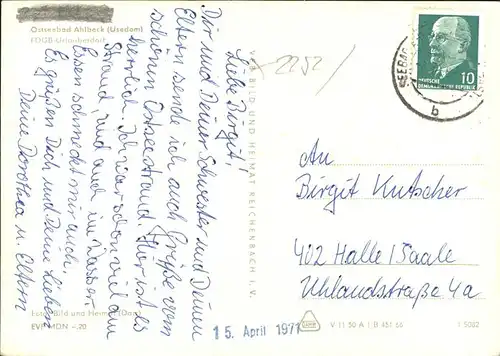 Ostseebad Ahlbeck (Usedom)
FDGB-Urlauberdorf
Liebe Birgit!
Dir und Deiner Schwester und Deinen
Eltern sende ich auch Grüße vom
schönen Ostseestrand. Hier ist es
herrlich. Ich war schon viel am
Strand, und auch im Wasser.
Essen schmeckt mir auch.
Es grüßen Dich und Deine Lieben
Deine Dorothea u. Eltern
VEB BILD UND HEIMAT REICHENBACH I. V.
2252/
SEEBAD
b
10
DEUTSCHE
DEMOKRATISCHE REPUBLIK
An
Birgit Kutscher
402 Halle / Saale
Uhlandstraße 4a
Foto: Bild und Heimat
EVP MDN -,20
15. April 1971
V 11 50 A 1/B 451 66
1 5082